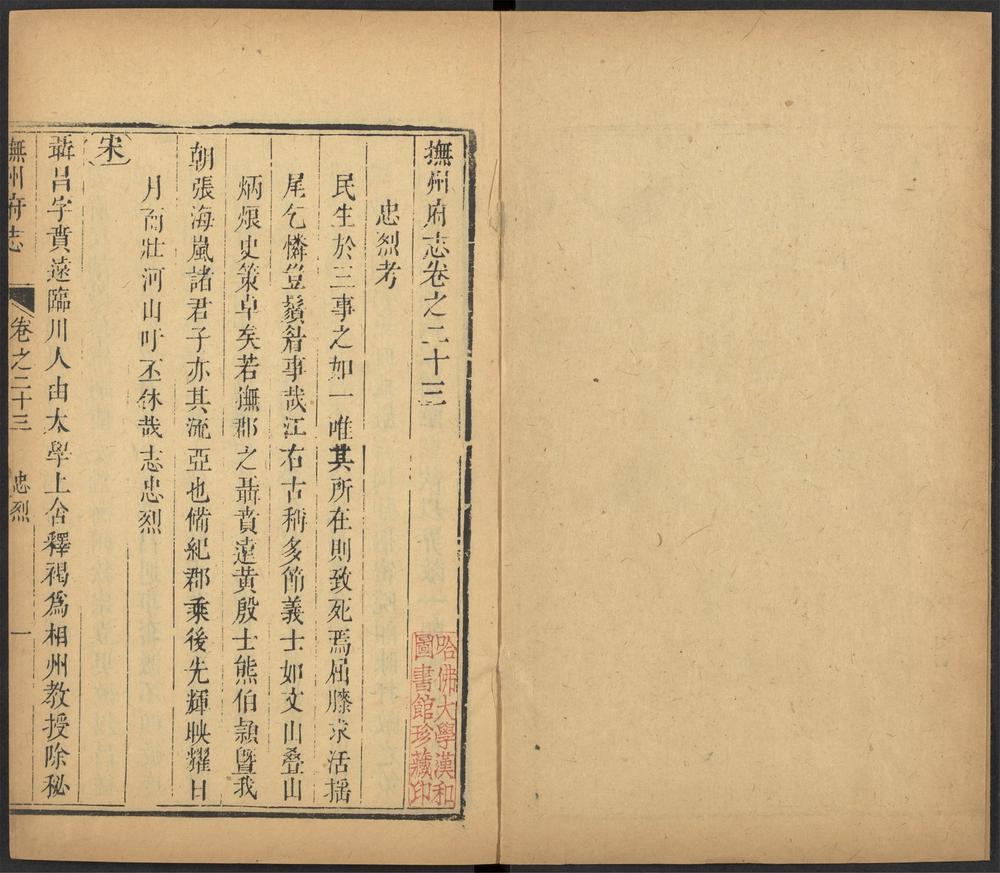 撫州府志卷之二十三
忠烈考
民生於三事之如一唯其所在則致死焉屈膝求活揺
尾乞憐豈鬚眉事哉江右古稱多節義士如文山疊山
炳烺史策卓矣若撫郡之聶賁遠黄殷士熊伯顥曁我
朝張海嵐諸君子亦其流亞也備紀郡乘後先輝映耀日
月而壯河山吁丕休哉志忠烈
宋
聶昌字賁遠臨川人由太學上舍釋褐爲相州教授除秘
撫州府志 卷之二十三 忠烈 一
哈佛大學漢和
圖書館珍藏印